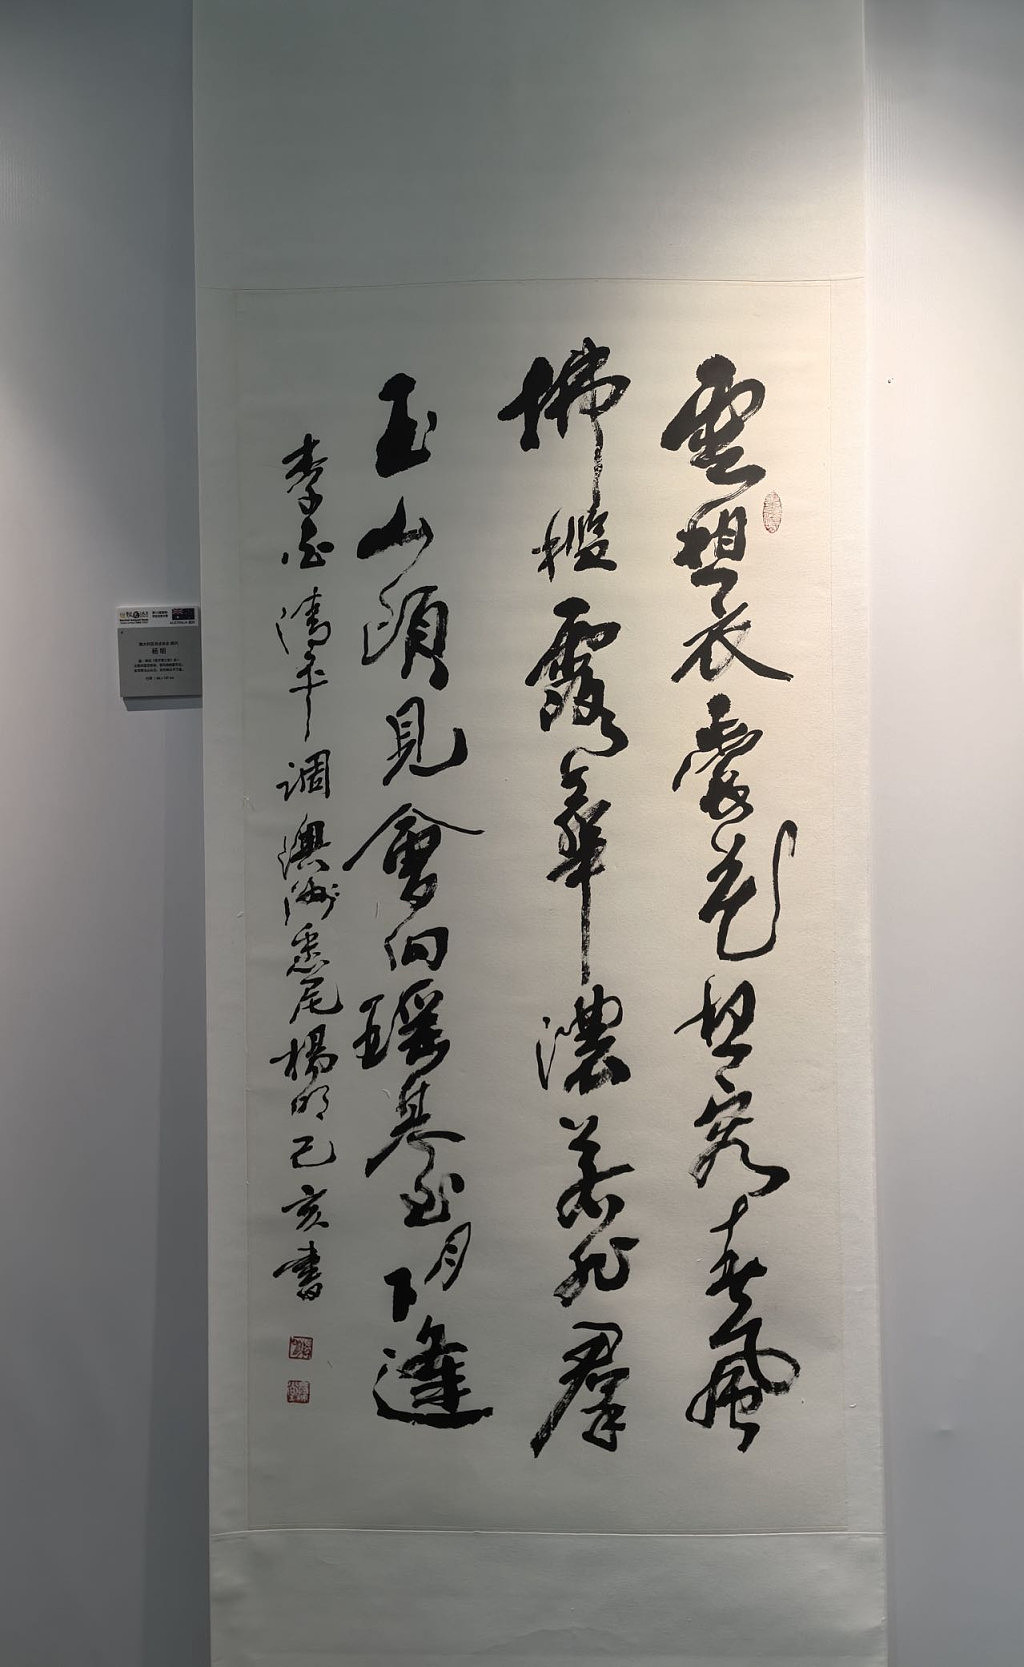 雲想衣裳花想容春風
拂檻露華濃若非群
玉山頭見會向瑤臺月下逢
李白清平調澳洲悉尼楊明己亥書
杨明